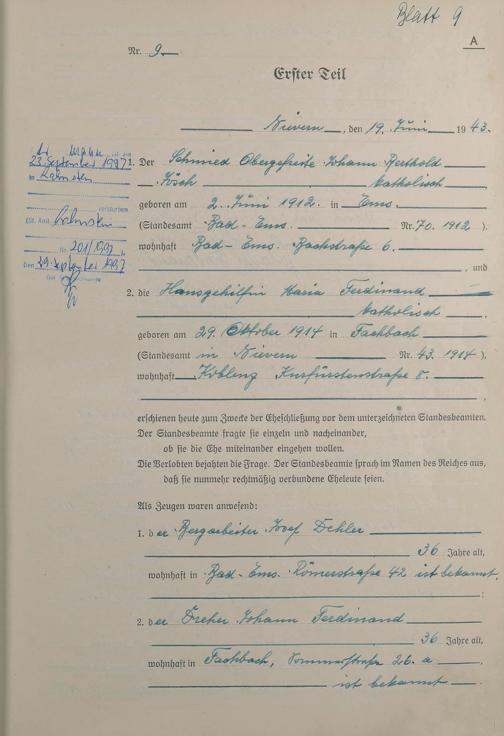 Blatt 9
A
Nr. 9
Erster Teil
Nievern, den 19. Juni 1943.
Der Mann ist am
23. September 1997
in Lahnstein
verstorben
(St. Amt Lahnstein
Nr. 201/1997)
Den 29. September 1997
1. Der Schmied Obergefreite Johann Berthold
Jösch katholisch
geboren am 2. Juni 1912 in Ems
(Standesamt Bad-Ems Nr. 70. 1912)
wohnhaft Bad-Ems Bachstraße 6.
, und
2. die Hausgehilfin Maria Ferdinand
katholisch
geboren am 29. Oktober 1914 in Fachbach
(Standesamt in Nievern Nr. 43. 1914),
wohnhaft Koblenz Kurfürstenstraße 8.
erschienen heute zum Zwecke der Eheschließung vor dem unterzeichneten Standesbeamten.
Der Standesbeamte fragte sie einzeln und nacheinander,
ob sie die Ehe miteinander eingehen wollen.
Die Verlobten bejahten die Frage. Der Standesbeamte sprach im Namen des Reiches aus,
daß sie nunmehr rechtmäßig verbundene Eheleute seien.
Als Zeugen waren anwesend:
1. der Bergarbeiter Josef Dehler
36 Jahre alt,
wohnhaft in Bad-Ems. Römerstraße 42 ist bekannt.
;
2. der Dreher Johann Ferdinand
36 Jahre alt,
wohnhaft in Fachbach, Sommerstraße 26. a
ist bekannt.